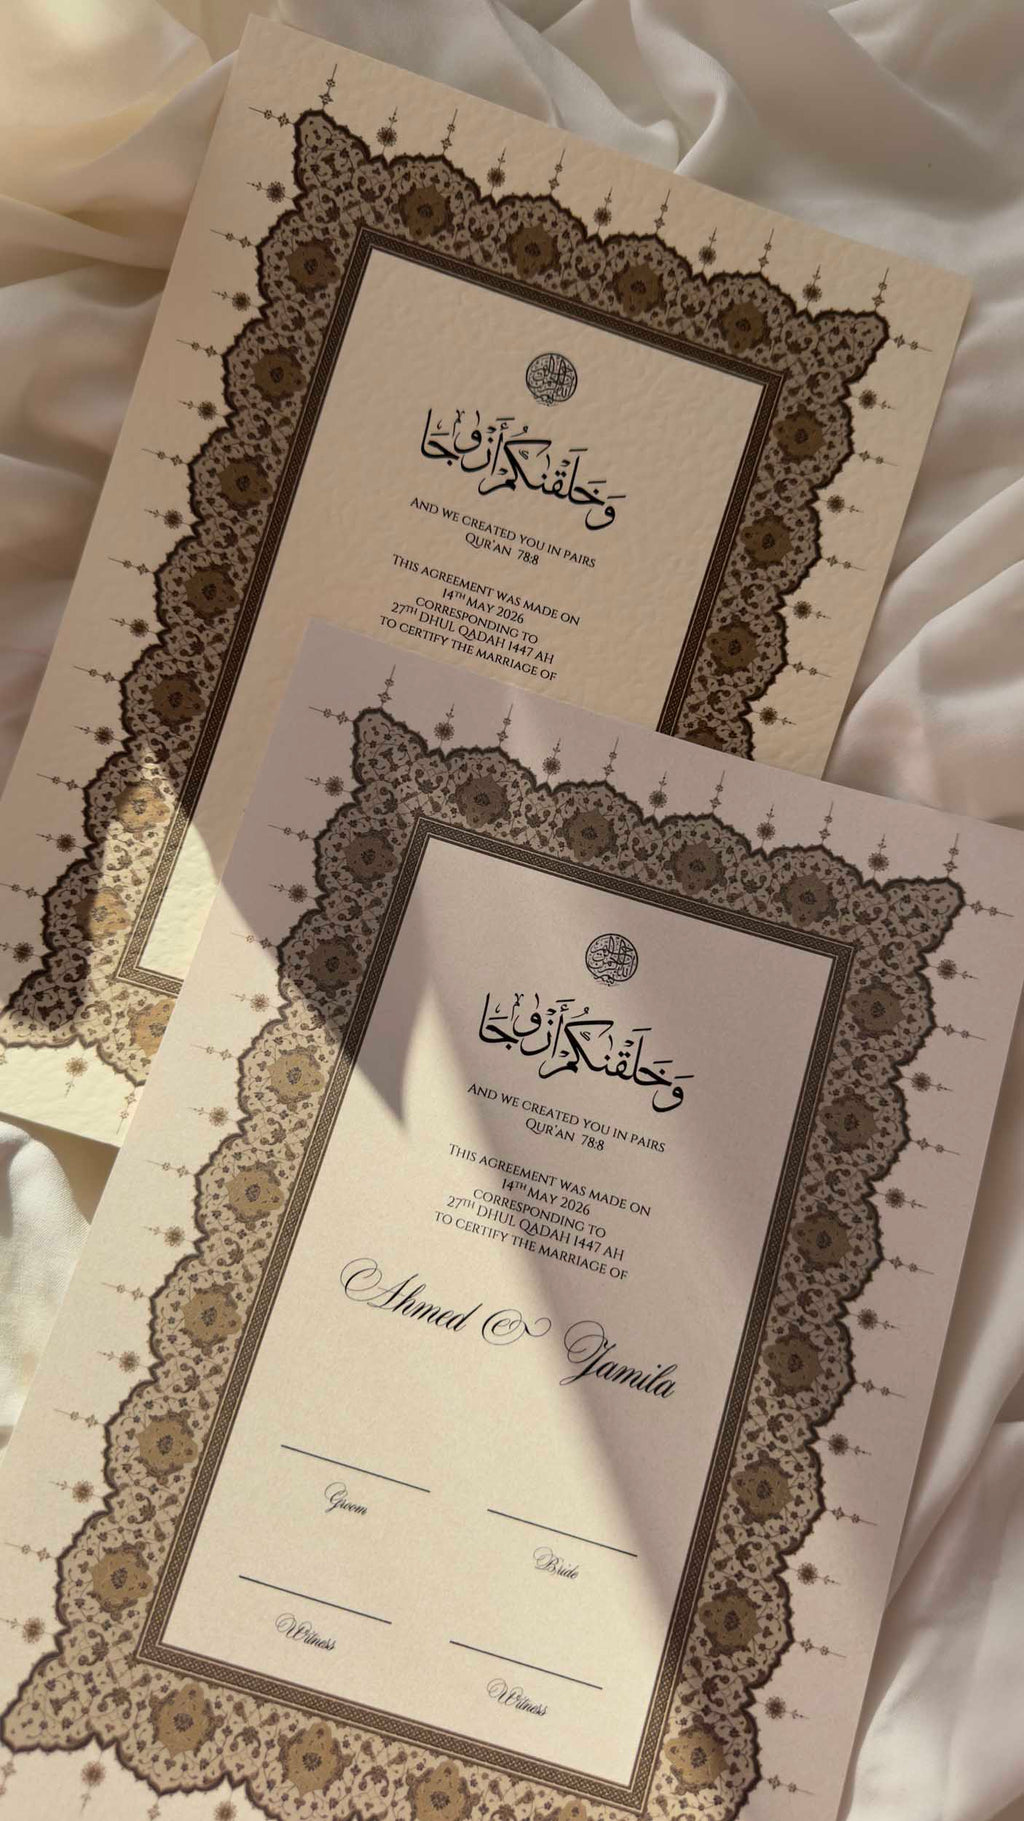 وَخَلَقْنَٰكُمْ أَزْوَٰجًا
AND WE CREATED YOU IN PAIRS
QUR'AN 78:8
THIS AGREEMENT WAS MADE ON
14TH MAY 2026
CORRESPONDING TO
27TH DHUL QADAH 1447 AH
TO CERTIFY THE MARRIAGE OF
وَخَلَقْنَٰكُمْ أَزْوَٰجًا
AND WE CREATED YOU IN PAIRS
QUR'AN 78:8
THIS AGREEMENT WAS MADE ON
14TH MAY 2026
CORRESPONDING TO
27TH DHUL QADAH 1447 AH
TO CERTIFY THE MARRIAGE OF
Ahmed & Jamila
Groom
Bride
Witness
Witness